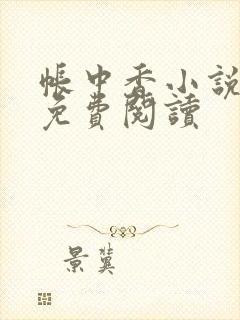 帳中香小說
免費閱讀
景冀